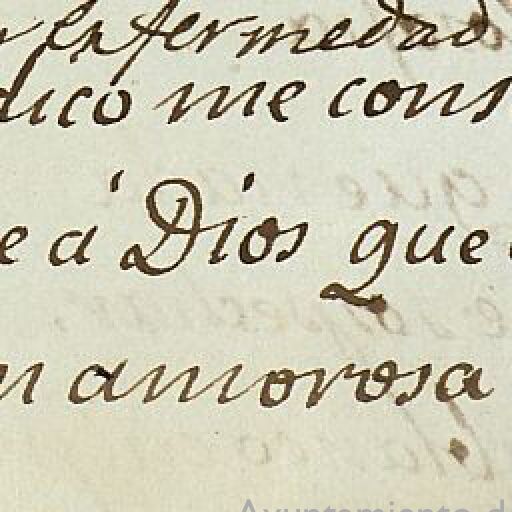 enfermedad
dico me cons
e á Dios que
n amorosa
Ayuntamiento d